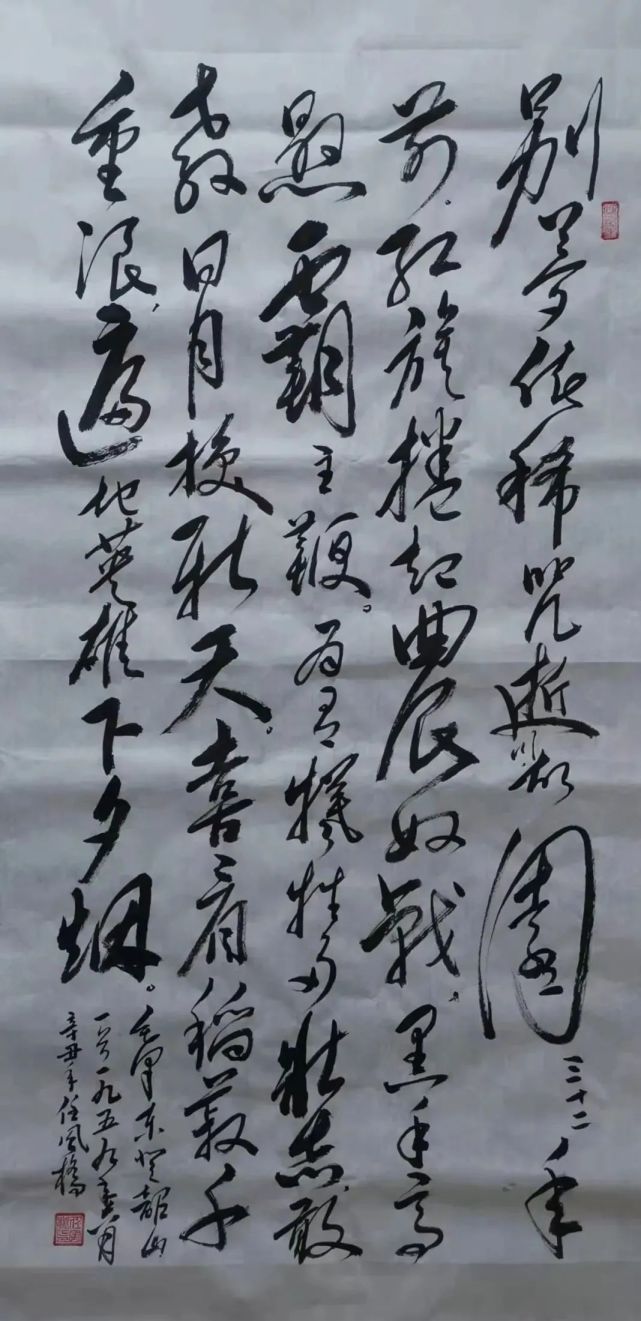 别梦依稀咒逝川故園三十二年
前红旗捲起農奴戟黑手高
懸霸主鞭。为有犧牲多壮志敢
教日月换新天。喜看稻菽千
重浪遍地英雄下夕烟。
毛泽东韶山
一九五九月
辛丑年任风桥